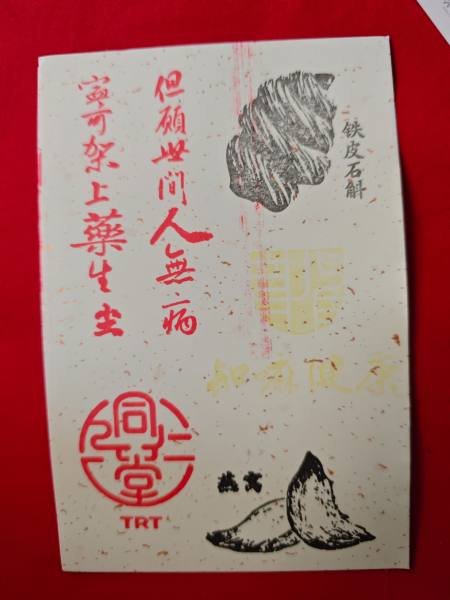 但願世间人無病
寧可架上藥生尘
铁皮石斛
知嘛健康
同仁堂
TRT
燕窝